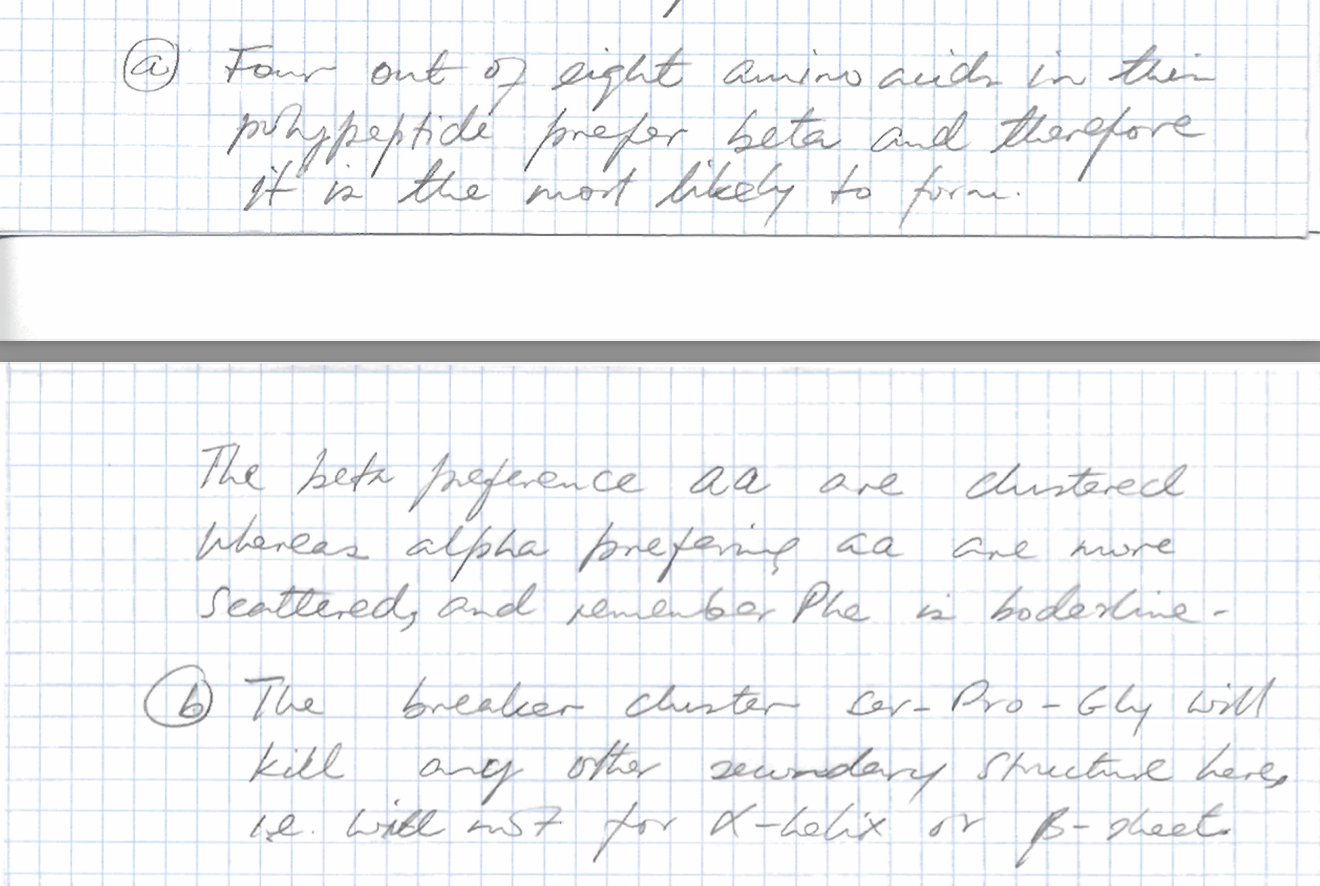 (a) Four out of eight amino acids in this
polypeptide prefer beta and therefore
it is the most likely to form.
The beta preference aa are clustered
whereas alpha prefering aa are more
scattered, and remember Phe is boderline.
(b) The breaker cluster Ser-Pro-Gly will
kill any other secondary structure here,
i.e. will not for α-helix or β-sheet.